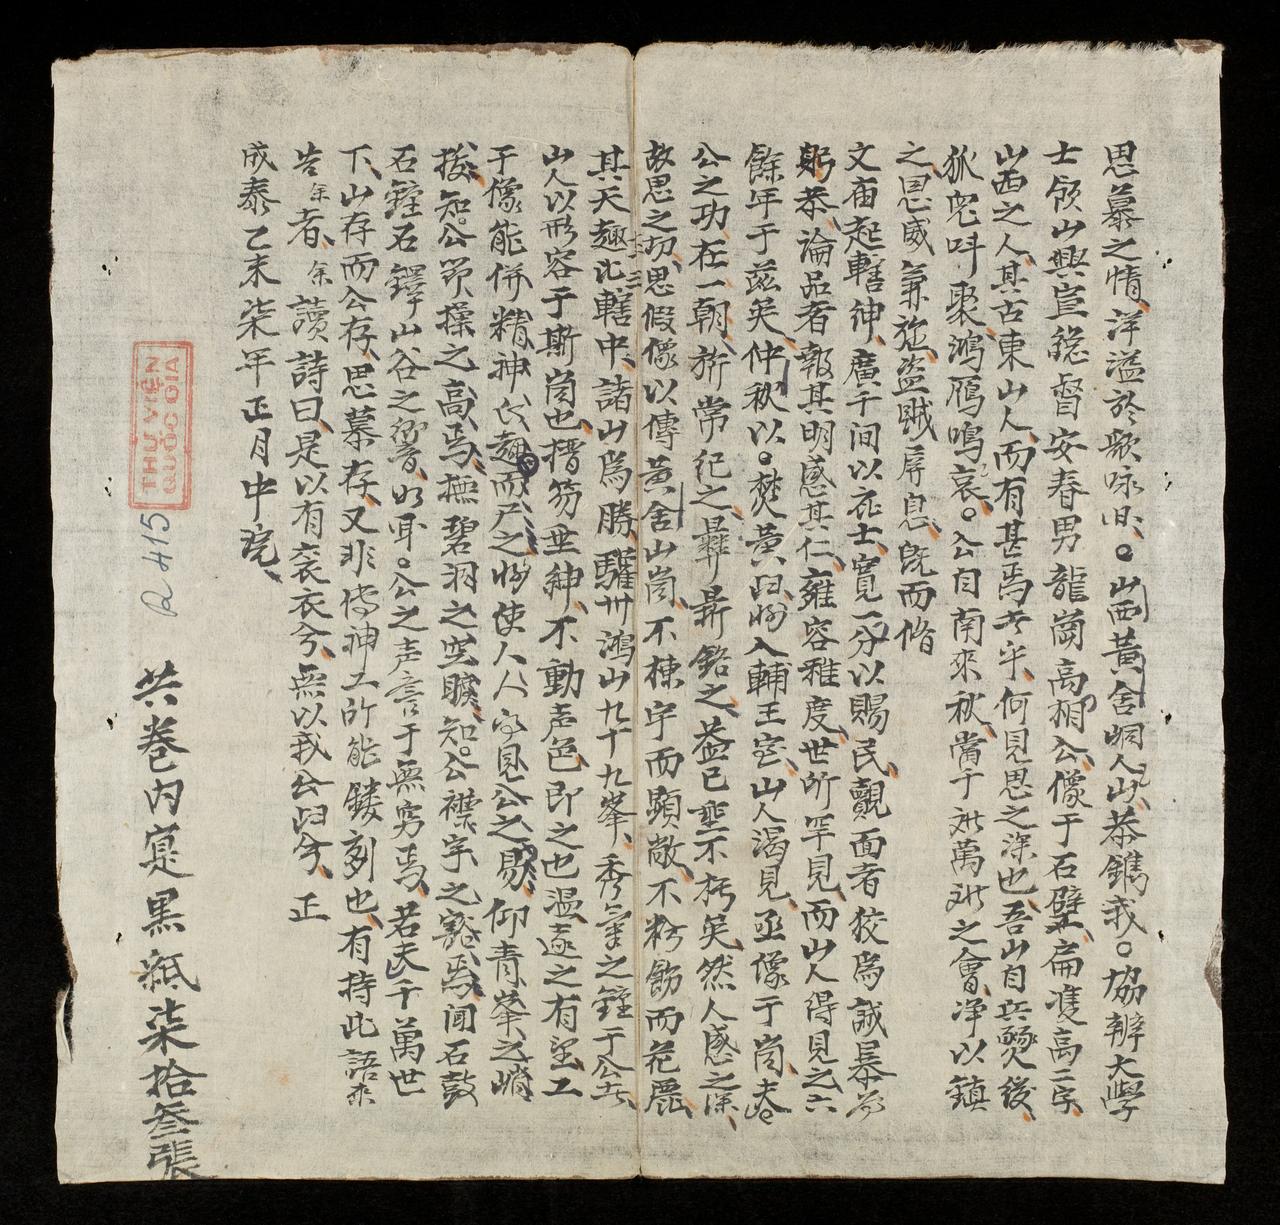 思慕之情洋溢於歌咏間。山西黃舍峒人山恭鐫我。協辨大學
士領山興宣總督安春男龍崗高相公像于石壁扁隻高二字
山西之人其古東山人而有甚焉者乎何見思之深也吾山自兵燹後
狐兜呌聚鴻雁鳴哀。公自南來秋當千難萬難之會淨以鎮
之恩威兼施盜賊屏息既而脩
文庙起轄紳廣千間以庇士寬一分以賜民覿面者狡為誠暴為
躬恭論品者報其明感其仁雍容雅度世所罕見而山人得見之六
餘年于茲矣仲秋以。焚黃歸將入輔王室山人渴見亟像于崗夫
公之功在一朝旂常紀之彝鼎銘之益已重不朽矣然人感之深
故思之切思假像以傳黃舍山崗不棟宇而顯敞不粉飾而花麗
其天趣北轄中諸山為勝驩州鴻山九十九峯秀氣之鍾于公者
山人以形容于斯崗也搢笏垂紳不動声色即之也溫遠之有望工
于像能併精神氣趣而尸之將使人人家見公之易仰青峯之峭
拔知。公節操之高焉撫碧洞之空曠知。公襟宇之豁焉闻石鼓
石鐘石鐸山谷之響如耳。公之声音于無窮焉若夫千萬世
下山存而公存思慕存又非傳神工所能鏤刻也有持此語來
告余者余讀詩曰是以有袞衣兮無以我公归兮正
成泰乙未柒年正月中浣
THƯ VIỆN
QUỐC GIA
R 415
共卷内寔黑紙柒拾叁張